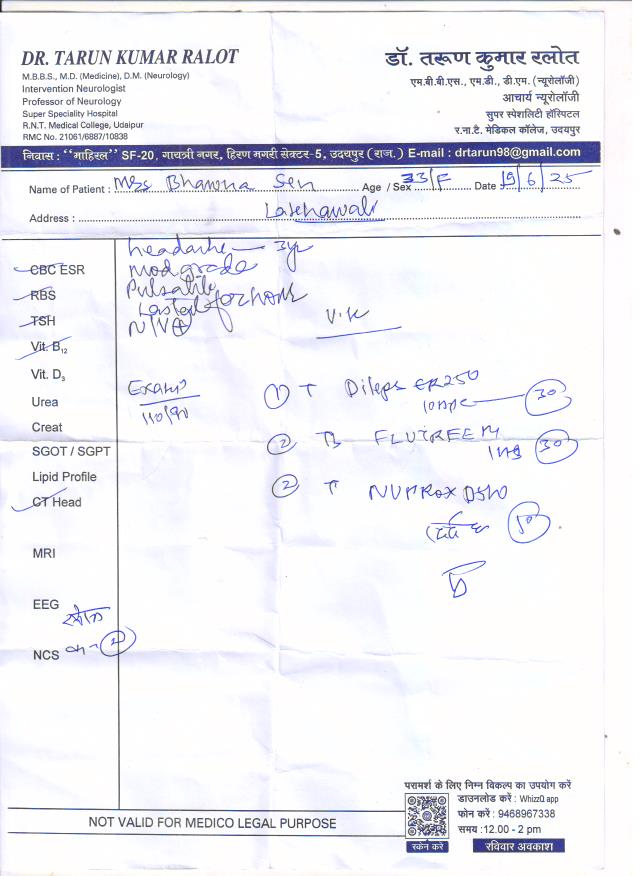 DR. TARUN KUMAR RALOT
M.B.B.S., M.D. (Medicine), D.M. (Neurology)
Intervention Neurologist
Professor of Neurology
Super Speciality Hospital
R.N.T. Medical College, Udaipur
RMC No. 21061/6887/10838
डॉ. तरूण कुमार रलोत
एम.बी.बी.एस., एम.डी., डी.एम. (न्यूरोलॉजी)
आचार्य न्यूरोलॉजी
सुपर स्पेशलिटी हॉस्पिटल
र.ना.टै. मेडिकल कॉलेज, उदयपुर
निवास : "माहिरल" SF-20, गायत्री नगर, हिरण मगरी सेक्टर-5, उदयपुर (राज.) E-mail : drtarun98@gmail.com
Name of Patient : Bhawna Sen Age / Sex 33/F Date 19/6/25
Address :
headache 3yr
mod grade
Pulsatile
Lasted for hour
N/V +
CBC ESR
RBS
TSH
Vit. B12
Vit. D3
Urea
Creat
SGOT / SGPT
Lipid Profile
CT Head
MRI
EEG
NCS
110/90
① T ER 250 30
② 30
② T 10
NOT VALID FOR MEDICO LEGAL PURPOSE
परामर्श के लिए निम्न विकल्प का उपयोग करें
डाउनलोड करें : WhizzQ app
फोन करें : 9468967338
समय :12.00 - 2 pm
स्कैन करें
रविवार अवकाश